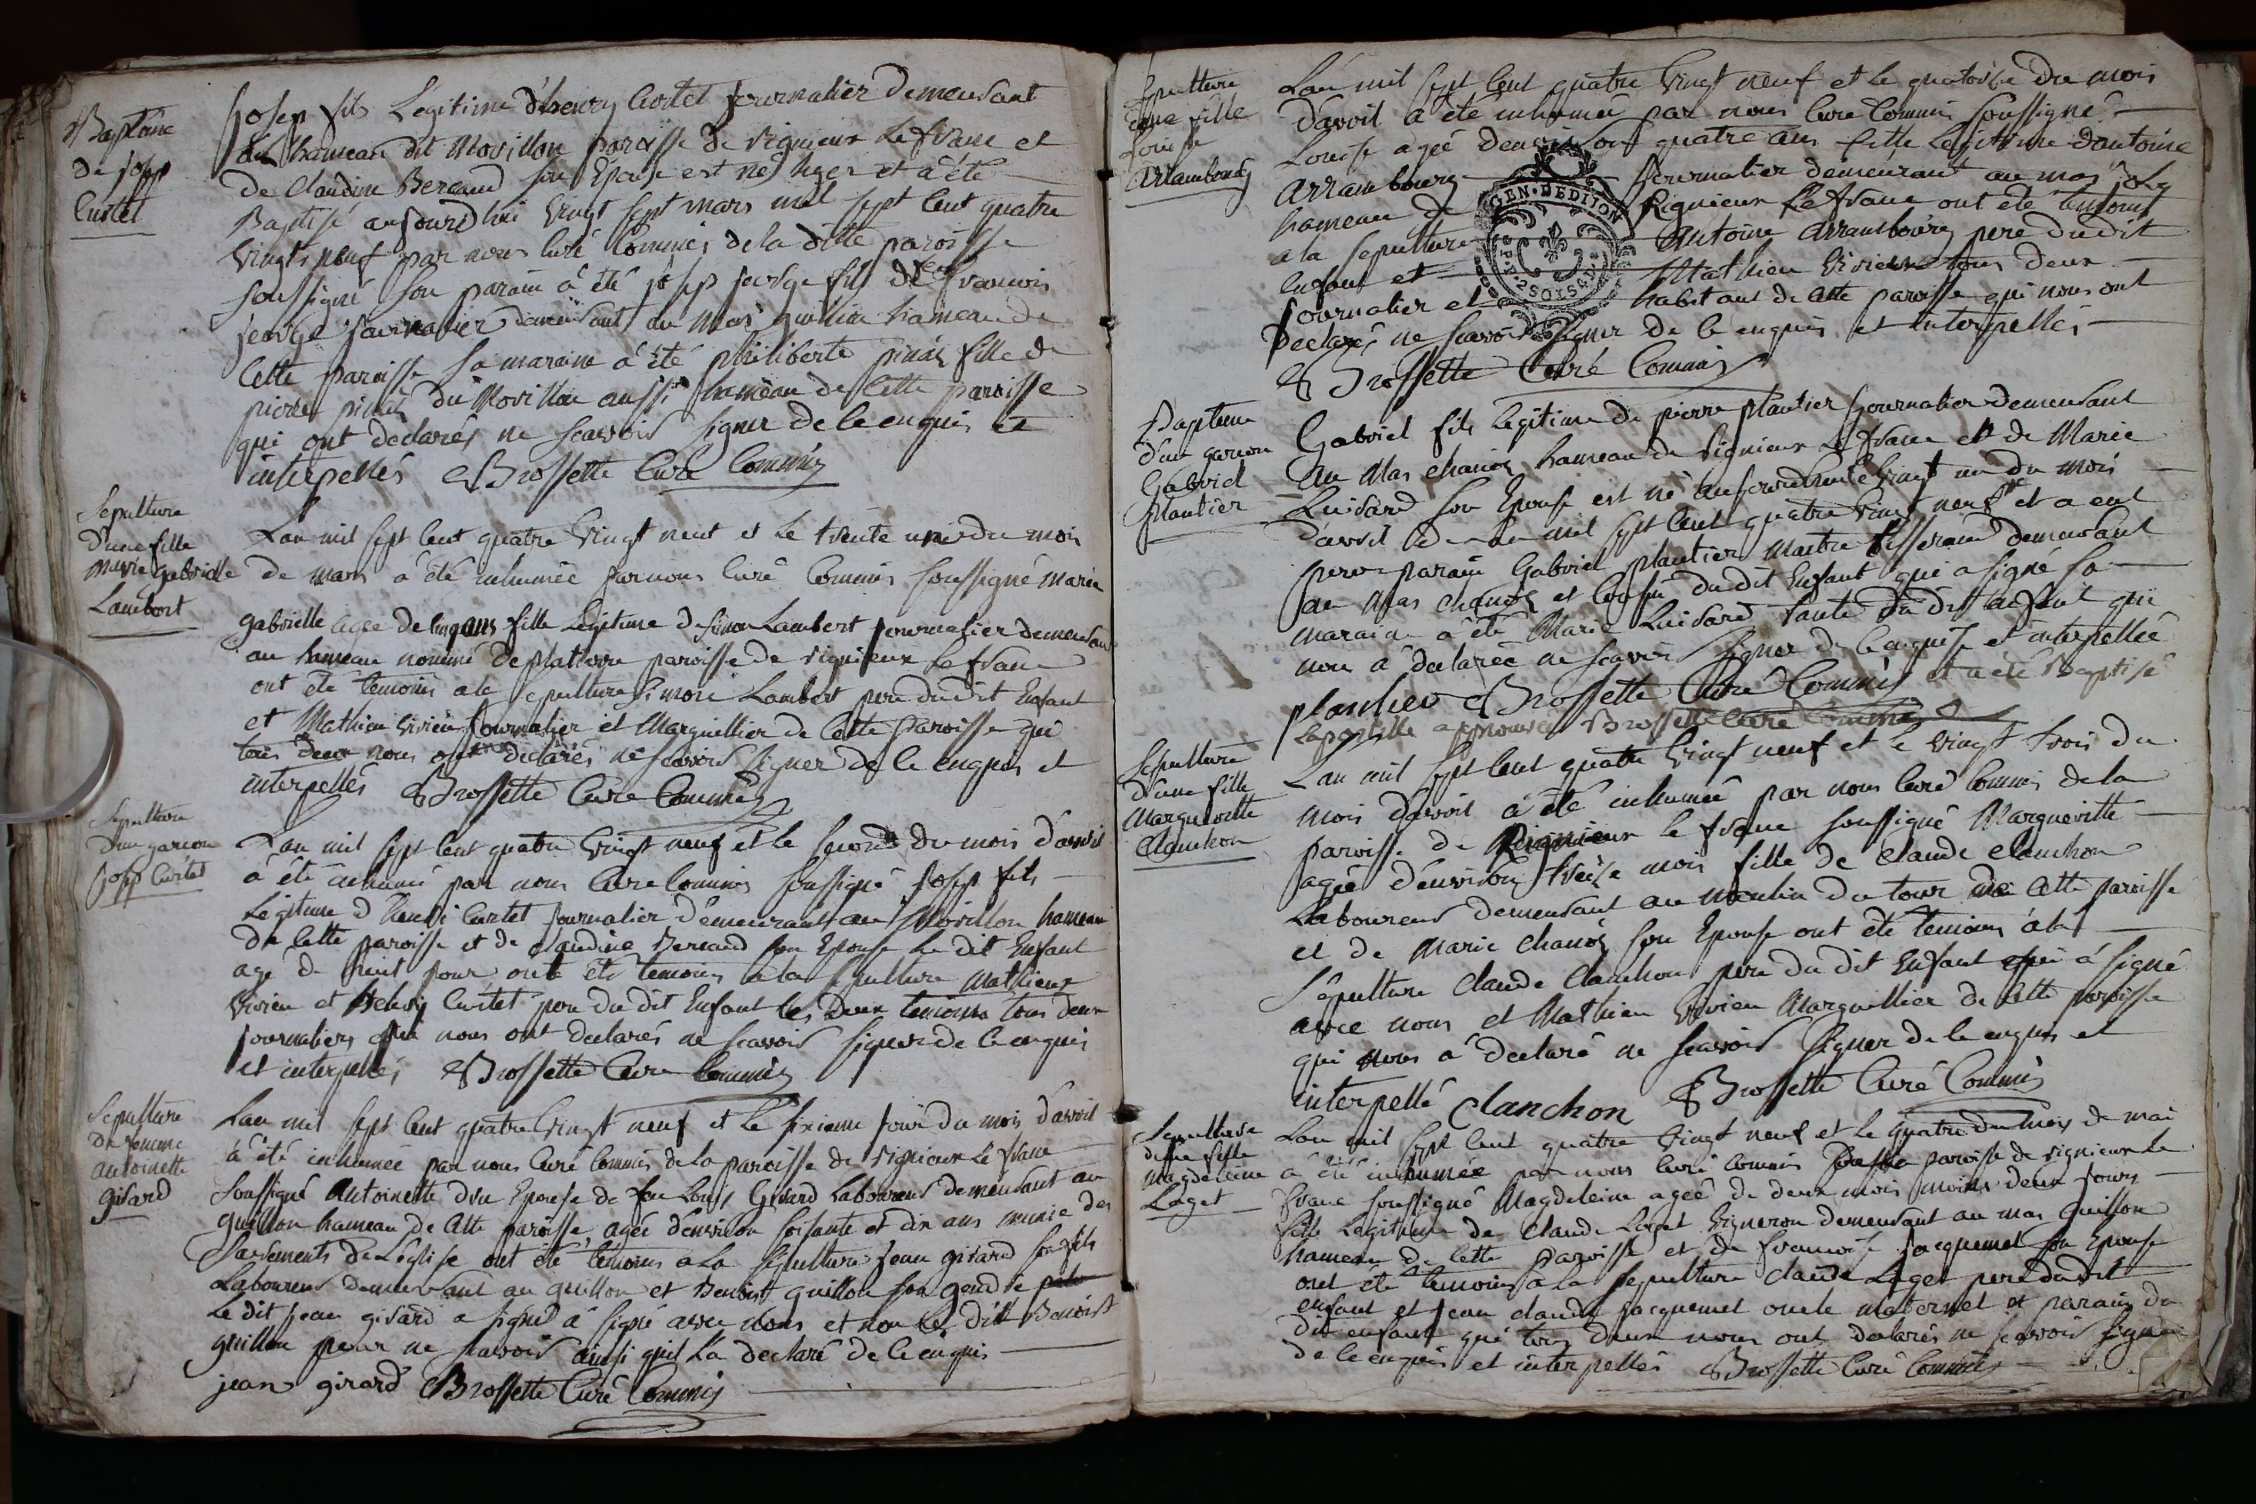 Baptême
de josep
Curtet
Josep fils Legitime d'henry Curtet journalier demeurant
au hameau dit Morillon paroisse de rignieux le franc et
de Claudine Beraud son Epouse est né hyer et a été
Baptisé aujourdhui vingt sept mars mil sept cent quatre
vingts neuf par nous curé Commis de la ditte paroisse
soussigné son parain a été josep george fils de francois
george journalier demeurant au Mas guillin hameau de
Cette paroisse sa maraine a été philiberte fille de
pierre du Morillon aussi hameau de Cette paroisse
qui ont déclarés ne scavoir signer de ce enquis et
interpellés Brossette Curé Commis
Sepulture
d'une fille
marie gabrielle
Lambert
Lan mil sept cent quatre vingt neuf et le trente un du mois
de mars a été inhumée par nous curé Commis soussigné marie
gabrielle agee de cinq ans fille Legitime de simon Lambert journalier demeurant
au hameau nommé de platière paroisse de rignieux le franc
ont été temoins a la sepulture simon Lambert pere du dit Enfant
et Mathieu vivien journalier et Marguillier de Cette paroisse qui
tous deux nous ont declarés ne scavoir signer de ce enquis et
interpellés Brossette Curé Commis
Sepulture
d'un garcon
josep Curtet
Lan mil sept cent quatre vingt neuf et le second du mois d'avril
a été inhumé par nous Curé Commis soussigné josep fils
Legitime d'henri Curtet journalier demeurant au Morillon hameau
de Cette paroisse et de claudine Beraud son Epouse le dit Enfant
agé de huit jour ont été temoins a la sepulture Mathieu
vivien et henry Curtet pere du dit Enfant les deux temoins tous deux
journaliers qui nous ont declarés ne scavoir signer de ce enquis
et interpellés Brossette Curé Commis
Sepulture
de femme
antoinette
girard
Lan mil sept cent quatre vingt neuf et le sixieme jour du mois d'avril
a été inhumée par nous Curé Commis de la paroisse de rignieux le franc
soussigné Antoinette Epouse de feu Louis Girard Laboureur demeurant au
guillon hameau de Cette paroisse, agée d'environ soisante et dix ans munie des
sacrements de L'eglise ont été temoins a la sepulture jean girard son fils
Laboureur demeurant au guillon et Benoist guillon son gendre
le dit jean girard a signé a signé avec nous et non le dit Benoist
guillon pour ne scavoir ainsi quil la declaré de ce enquis
jean girard Brossette Curé Commis
Sepulture
d'une fille
Louise
Arrambourg
Lan mil sept cent quatre vingt neuf et le quatorze du mois
d'avril a été inhumée par nous Curé Commis soussigné
Louise agée denviron quatre ans fille Legitime dantoine
arrambourg journalier demeurant au mas
hameau de Rignieux Le franc ont été temoins
a la sepulture Antoine Arrambourg pere dudit
Enfant et Mathieu vivien tous deux
journalier et habitant de Cette paroisse qui nous ont
Declarés ne scavoir signer de ce enquis et interpellés
GEN·DEDIJON
Brossette Curé Commis
Bapteme
d'un garcon
Gabriel
plantier
Gabriel fils Legitime de pierre plantier journalier demeurant
au Mas chanoz hameau de rignieux le franc et de Marie
Luisard son Epouse est né aujourdhui le vingt un du mois
davril mil sept cent quatre vingt neuf et a eut
pour parain Gabriel plantier Maitre tisserand demeurant
au Mas chanoz et cousin du dit Enfant qui a signé sa
maraine a été Marie Luisard tante du dit Enfant qui
nous a declarée ne scavoir signer de ce enquise et interpellée
plantier Brossette Curé Commis et a été Baptisé
Lapostille approuvée Brossette Curé Commis
Sepulture
d'une fille
Marguerite
Clanchon
Lan mil sept cent quatre vingt neuf et le vingt trois du
mois d'avril a été inhumée par nous Curé Commis de la
paroisse de Rignieux le franc soussigné Marguerite
agée d'environ treize mois fille de claude clanchon
Laboureur demeurant au Moulin du tour de Cette paroisse
et de Marie chanoz son Epouse ont été temoins a la
sepulture Claude Clanchon pere du dit Enfant qui a signé
avec nous et Mathieu vivien Marguillier de Cette paroisse
qui nous a declaré ne scavoir signer de ce enquis et
interpellé Clanchon Brossette Curé Commis
Sepulture
d'une fille
Magdeleine
Laget
Lan mil sept cent quatre vingt neuf et le quatre du mois de mai
a été inhumée par nous Curé Commis paroisse de rignieux le
franc soussigné Magdeleine agée de deux mois moins deux jours
fille Legitime de Claude Laget vigneron demeurant au mas guillon
hameau de Cette paroisse et de francoise jacquemet son Epouse
ont été temoins a la sepulture claude Laget pere du dit
enfant et jean claude jacquemet oncle maternel et parain du
dit enfant qui tous deux nous ont declarés ne scavoir signer
de ce enquis et interpellés Brossette Curé Commis